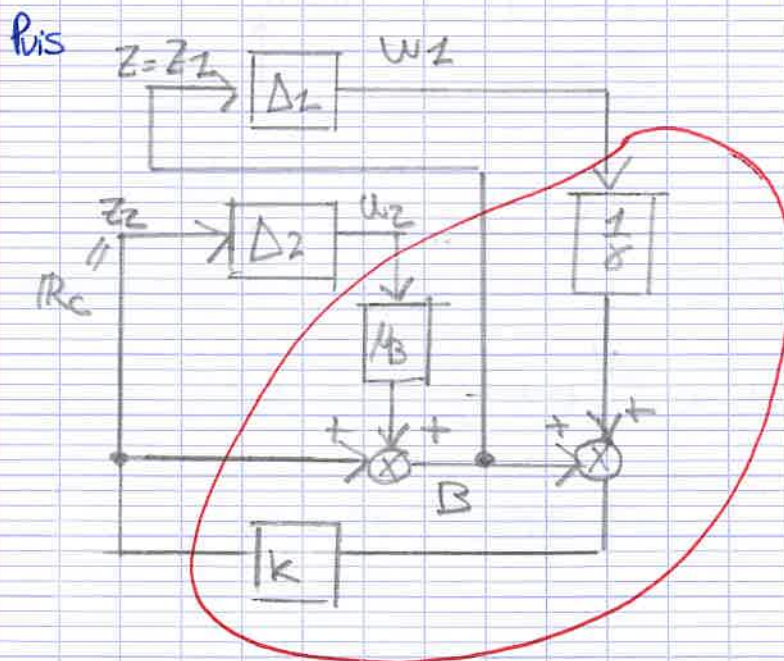 Puis
Z=Z1
Δ1
W1
Z2
Δ2
W2
1/γ
μB
+
+
+
+
B
K